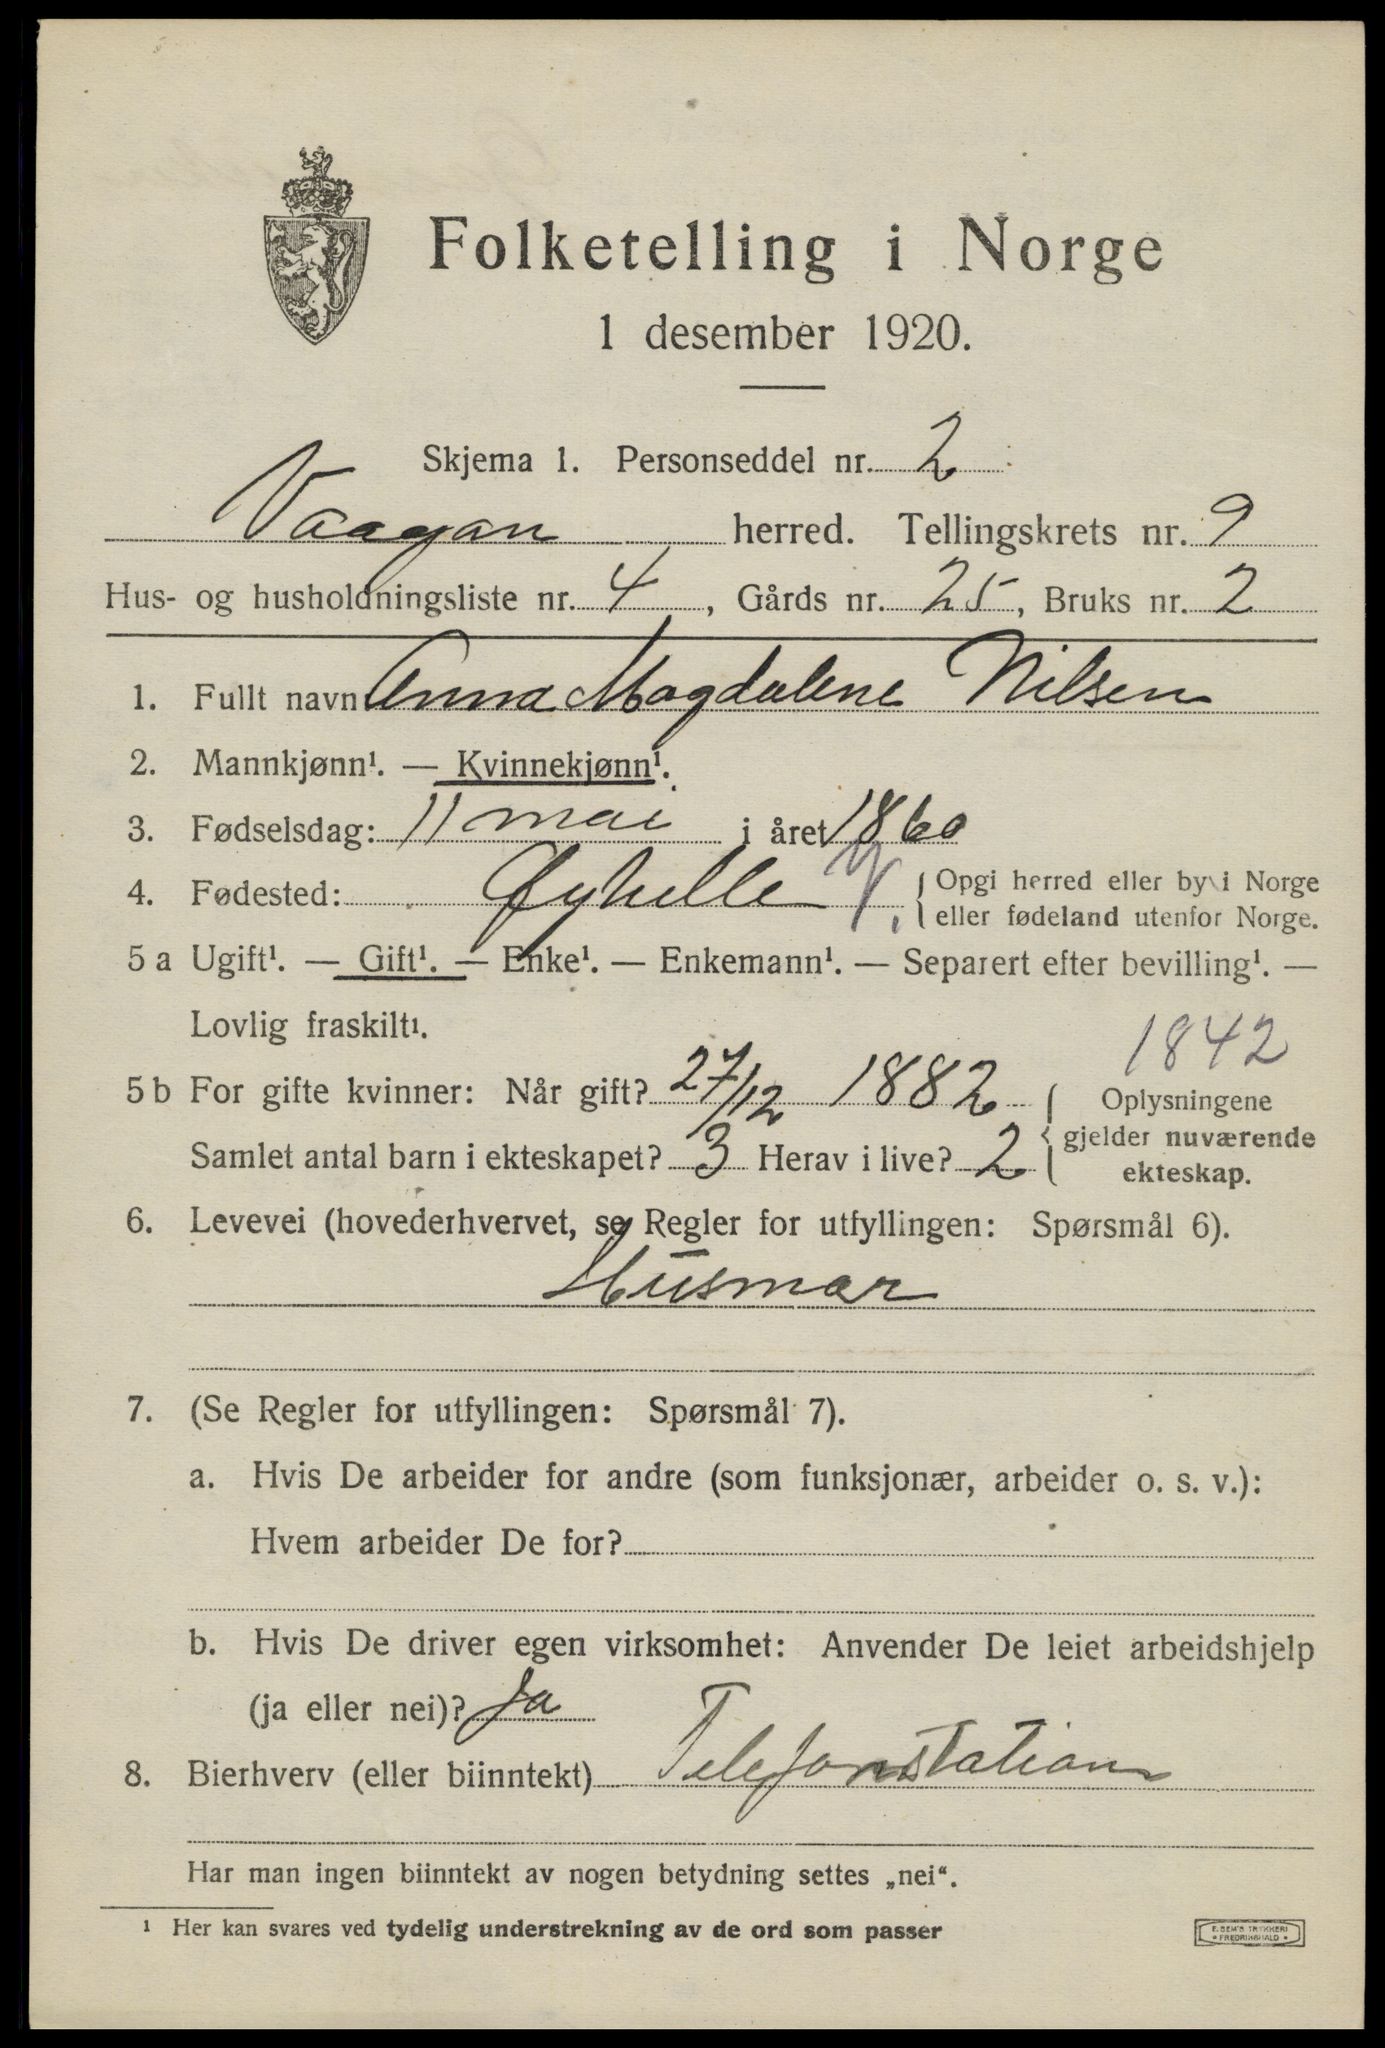 Folketelling i Norge
1 desember 1920.
Skjema 1. Personseddel nr. 2
Vaagan herred. Tellingskrets nr. 9
Hus- og husholdningsliste nr. 4, Gårds nr. 25, Bruks nr. 2
1. Fullt navn Anna Magdalene Nilsen
2. Mannkjønn¹. — Kvinnekjønn¹.
3. Fødselsdag: 11 mai i året 1860
4. Fødested: Øyhelle {Opgi herred eller by i Norge
eller fødeland utenfor Norge.
5 a Ugift¹. — Gift¹. — Enke¹. — Enkemann¹. — Separert efter bevilling¹. —
Lovlig fraskilt¹.
1842
5 b For gifte kvinner: Når gift? 27/12 1882 { Oplysningene
gjelder nuværende
Samlet antal barn i ekteskapet? 3 Herav i live? 2
ekteskap.
6. Levevei (hovederhvervet, se Regler for utfyllingen: Spørsmål 6).
Husmor
7. (Se Regler for utfyllingen: Spørsmål 7).
a. Hvis De arbeider for andre (som funksjonær, arbeider o. s. v.):
Hvem arbeider De for?
b. Hvis De driver egen virksomhet: Anvender De leiet arbeidshjelp
(ja eller nei)? Ja
8. Bierhverv (eller biinntekt) Telefonstation
Har man ingen biinntekt av nogen betydning settes „nei“.
¹ Her kan svares ved tydelig understrekning av de ord som passer
E. SEM'S TRYKKERI
FREDRIKSHALD